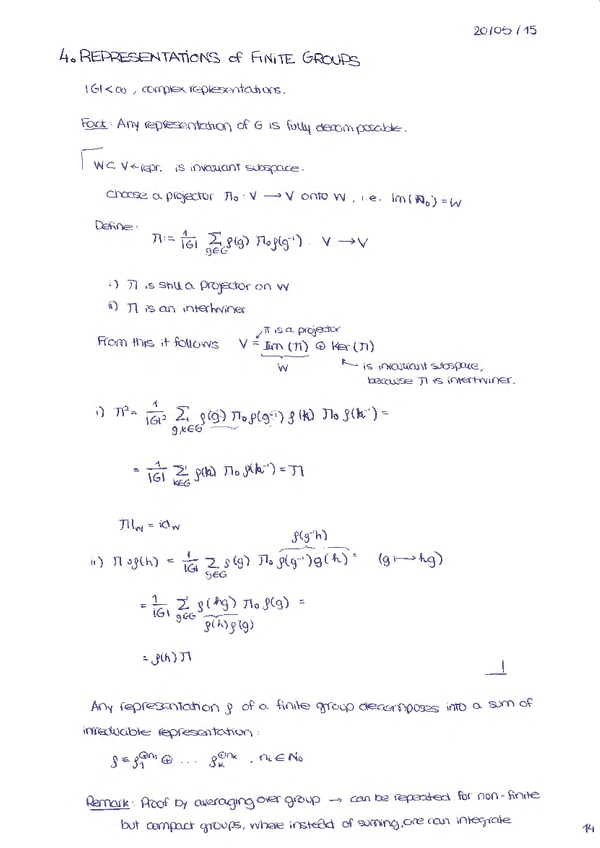 20/05/15
4. REPRESENTATIONS of FINITE GROUPS
|G|<∞, complex representations.
Fact: Any representation of G is fully decomposable.
W ⊂ V ← repr. is invariant subspace.
Choose a projector π₀ : V → V onto W, i.e. Im(π₀) = W
Define:
π := 1/|G| Σ_{g∈G} ρ(g) π₀ ρ(g⁻¹) V → V
i) π is still a projector on W
ii) π is an intertwiner
π is a projector
From this it follows V = Im(π) ⊕ Ker(π)
W
is invariant subspace,
because π is intertwiner.
i) π² = 1/|G|² Σ_{g,k∈G} ρ(g) π₀ ρ(g⁻¹) ρ(k) π₀ ρ(k⁻¹) =
= 1/|G| Σ_{k∈G} ρ(k) π₀ ρ(k⁻¹) = π
π|_W = id_W
ρ(g⁻¹h)
ii) π∘ρ(h) = 1/|G| Σ_{g∈G} ρ(g) π₀ ρ(g⁻¹)ρ(h) = (g ↦ hg)
= 1/|G| Σ_{g∈G} ρ(hg) π₀ ρ(g) =
ρ(h)ρ(g)
= ρ(h) π
Any representation ρ of a finite group decomposes into a sum of
irreducible representation:
ρ = ρ₁^{⊕n₁} ⊕ ... ρ_k^{⊕n_k}, n_i ∈ ℕ₀
Remark: Proof by averaging over group → can be repeated for non-finite
but compact groups, where instead of suming, one can integrate
14